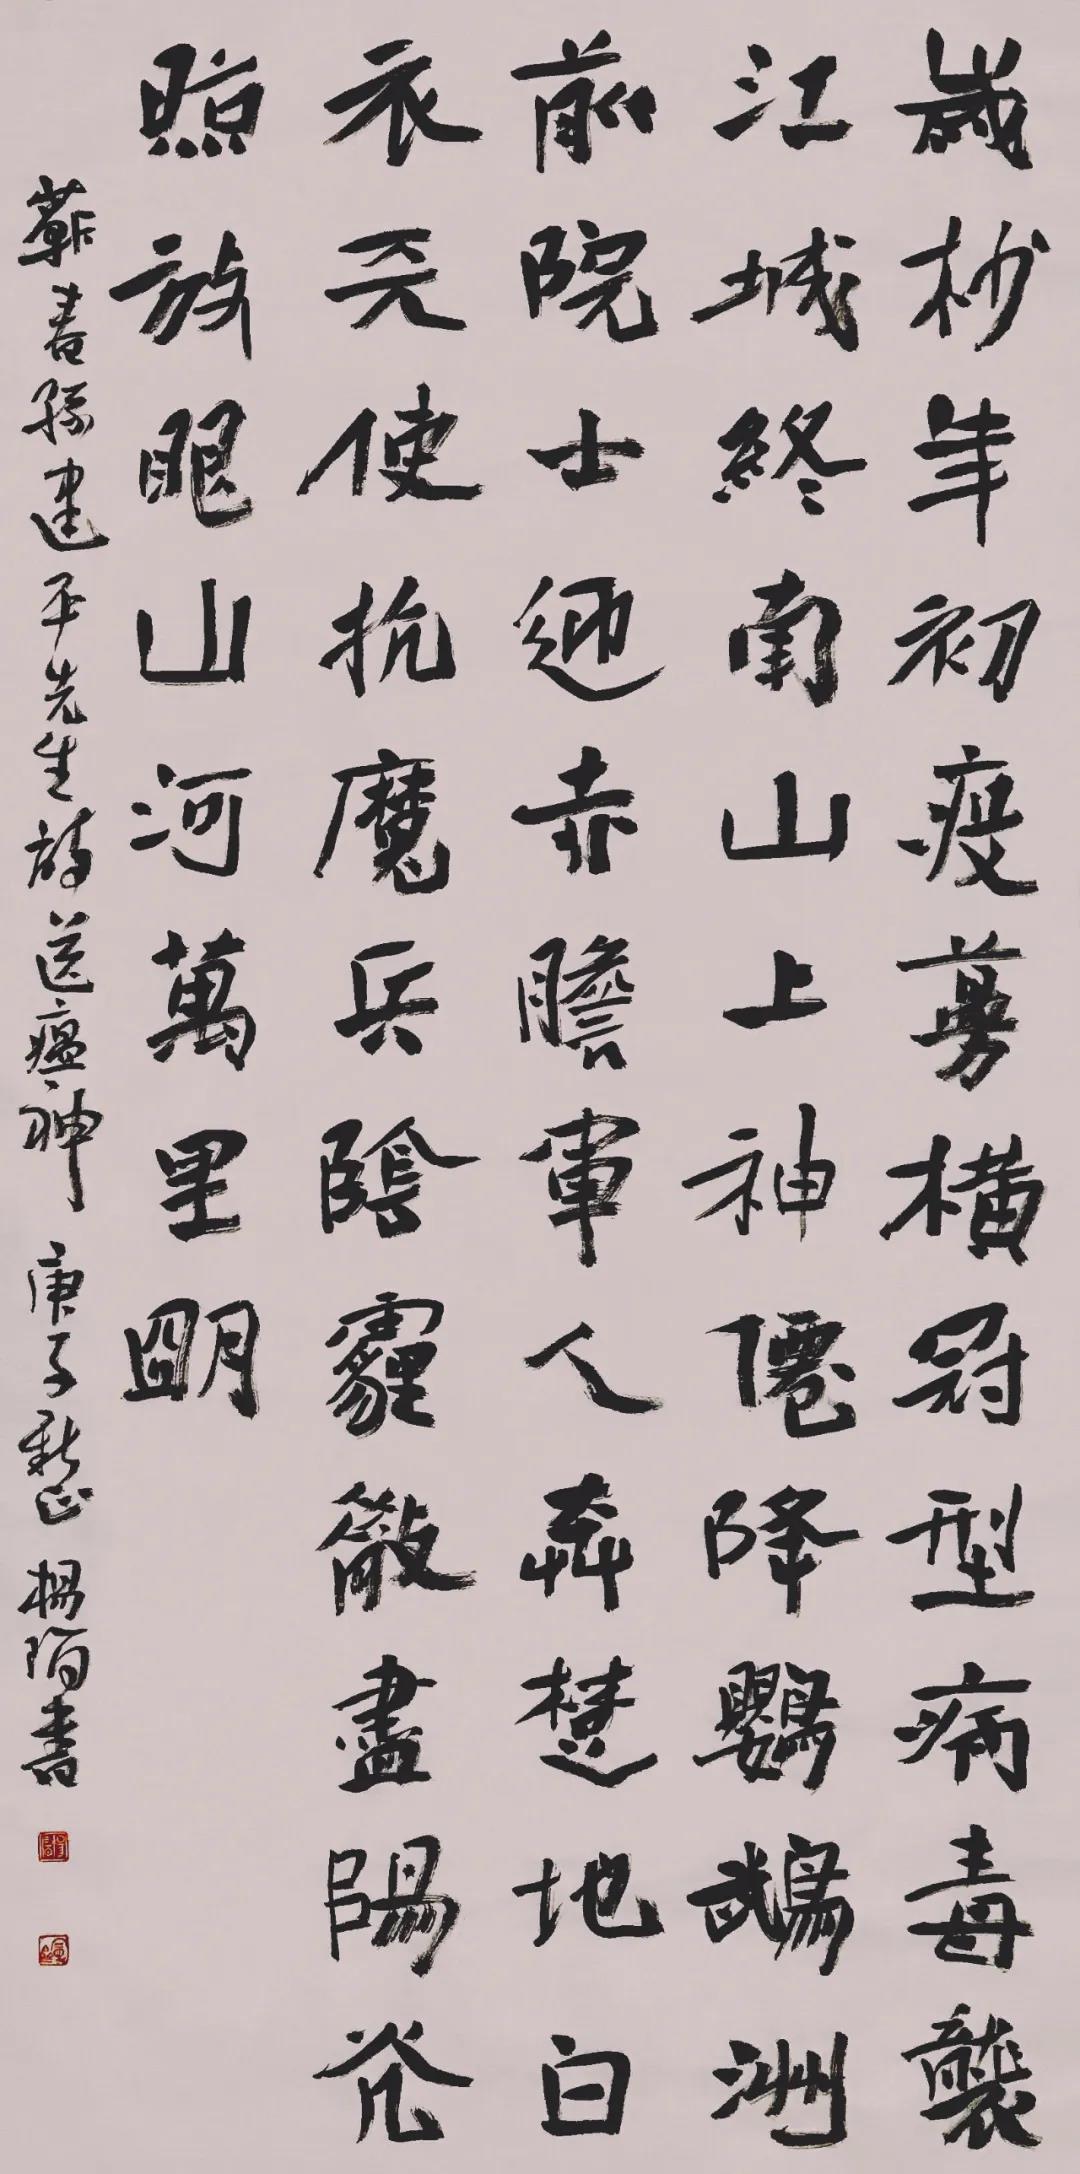 歲杪年初疫蔓橫冠型病毒襲
江城終南山上神僊降鸚鵡洲
前院士迎赤膽軍人奔楚地白
衣天使抗魔兵陰霾散盡陽光
照放眼山河萬里朙
蘄春孫建平先生詩送瘟神 庚子新正 陌書